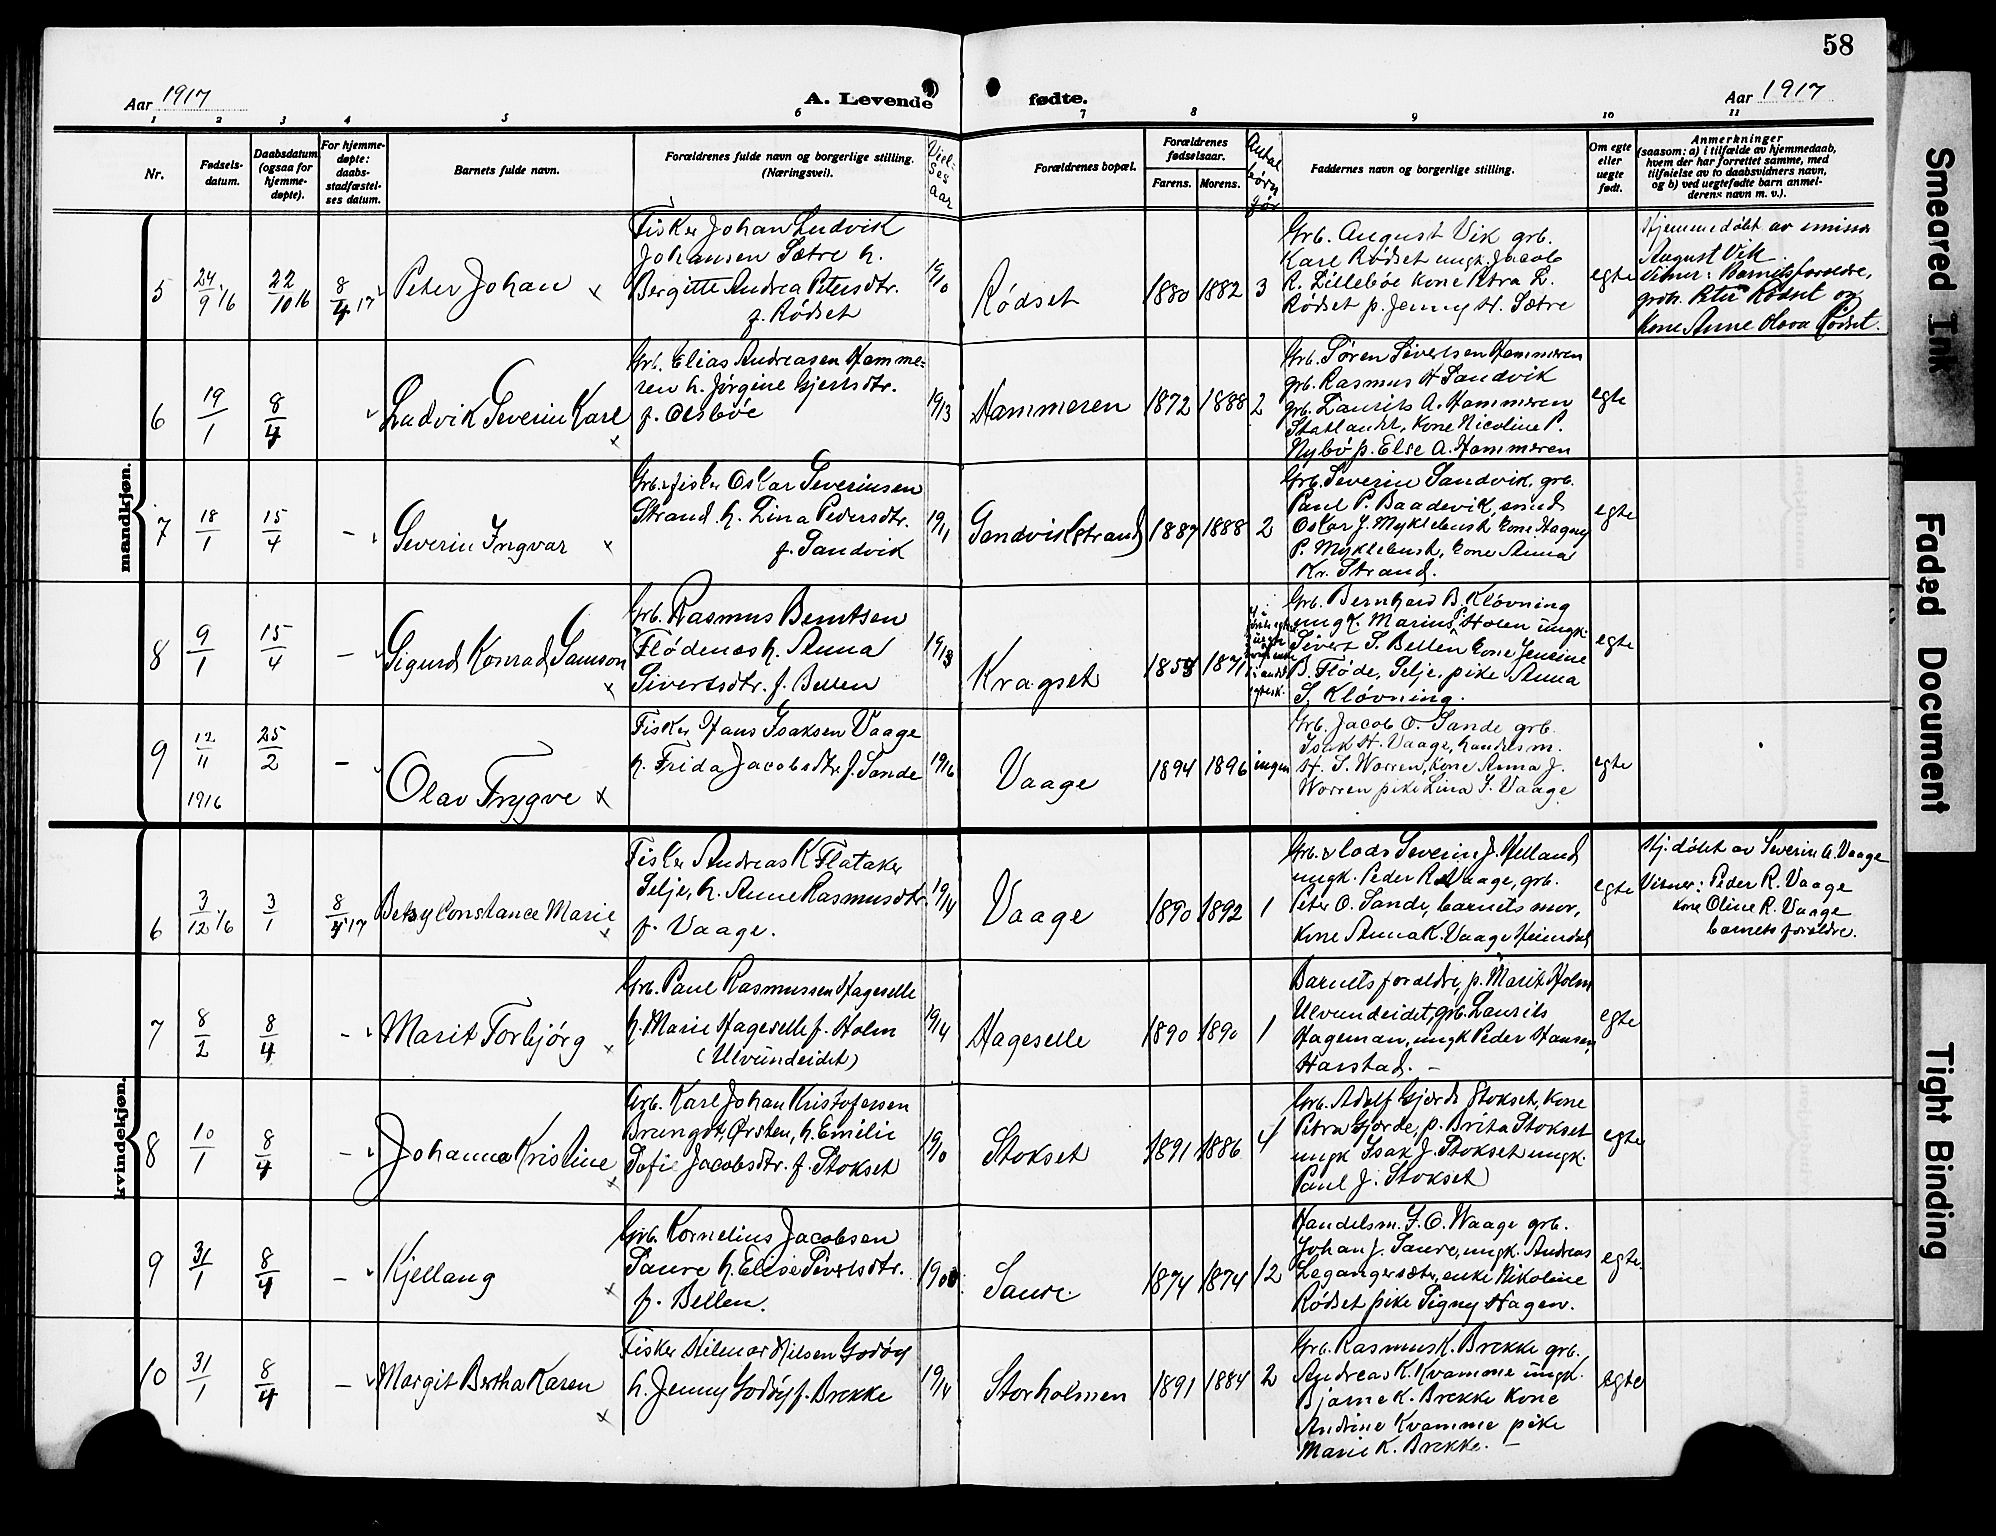 58
Aar 1917
A. Levende fødte.
Aar 1917
1 2 3 4 5 6 7 8 9 10 11
Nr.
Fødsels-
datum.
Daabsdatum
(ogsaa for
hjemme-
døpte).
For hjemme-
døpte:
daabs-
stadfæstel-
ses datum.
Barnets fulde navn.
Forældrenes fulde navn og borgerlige stilling.
(Næringsvei).
Viel-
ses
aar
Forældrenes bopæl.
Forældrenes
fødselsaar.
Farens. Morens.
Antal
børn
før
Faddernes navn og borgerlige stilling.
Om egte
eller
uegte
født.
Anmerkninger
(saasom: a) i tilfælde av hjemmedaab,
hvem der har forrettet samme, med
tilføielse av to daabsvidners navn,
og b) ved uegtefødte barn anmel-
derens navn m. v.).
mandkjøn.
5
24/9 16
22/10 16
8/4 17
Peter Johan
Fisker Johan Ludvik
Johansen Sætre h.
Bergitte Andrea Petersdtr.
f. Rødset
19/10
Rødset
1880 1882 3
Grb. August Vik grb.
Karl Rødset ungk. Jacob
R. Lillebøe kone Petra L.
Rødset p. Jenny H. Sætre
egte
Hjemmedøbt av emissær
August Vik.
Vitner: Barnets forældre,
grb. Peter Rødset og
kone Anne Olava Rødset.
6
19/1
8/4
Ludvik Severin Karl
Grb. Elias Andreasen Hamme-
ren h. Jørgine Gjertsdtr.
f. Olsbøe
19/13
Hammeren
1872 1888 2
Grb. Søren Sivertsen Hammeren
grb. Rasmus H Sandvik
grb. Laurits A. Hammeren
Statlandet, kone Nicoline P.
Nybø p. Else A. Hammeren
egte
7
18/1
15/4
-
Severin Ingvar
Grb. & fisker Oskar Severinsen
Strand h. Lina Pedersdtr.
f. Sandvik
19/11
Sandvikstrand
1887 1888 2
Grb. Severin Sandvik, grb.
Paul P. Baadsvik, smed
Oskar J. Myklebust kone Hagny
P. Myklebust, kone Anna
Kr. Strand.
egte
8
9/1
15/4
-
Sigurd Konrad Samson
Grb. Rasmus Berntsen
Flødenes h. Anna
Sivertsdtr. f. Bellen
1913
Kragset
1854 1871
Grb. Bernhard B. Kløvning
ungk. Marius P. Holen ungk.
Sivert S. Bellen kone Jensine
B. Fløde, Selje, pike Anna
S. Kløvning.
egte
9
12/11
1916
25/2
-
Olav Trygve
Fisker Hans Isaksen Vaage
h. Frida Jacobsdtr f. Sande
1916
Vaage
1894 1896 ingen
Grb. Jacob O. Sande grb.
Isak H. Vaage, handelsm.
H. S. Worren, kone Anna J.
Worren pike Lina I. Vaage
egte
kvindekjøn.
6
3/12 16
3/1
8/4 17
Betsy Constance Marie
Fisker Andreas K Flataker
Selje, h. Anne Rasmusdtr.
f. Vaage.
19/14
Vaage
1890 1892 1
Grb. & lods Severin J. Helland
ungk. Peder R. Vaage, grb.
Peter O. Sande, barnets mor,
kone Anna K. Vaage Heimdal
egte
Hj. døbt av Severin A. Vaage
Vitner: Peder R. Vaage
kone Oline R. Vaage
barnets forældre.
7
8/2
8/4
-
Marit Torbjørg
Grb. Paul Rasmussen Hageselle
h. Marie Hageselle f. Holm
(Ulvundeidet)
19/14
Hageselle
1890 1890 1
Barnets forældre, p. Marit Holm
Ulvundeidet, grb. Laurits
Hageman, ungk Peder Hansen,
Harstad. -
egte
8
10/1
8/4
-
Johanna Kristine
Grb. Karl Johan Kristofersen
Brungot, Ørsten, h. Emilie
Sofie Jacobsdtr. f. Stokset
19/10
Stokset
1891 1886 4
Grb. Adolf Gjerde Stokset, kone
Petra Gjerde, p. Brita Stokset
ungk Isak J. Stokset ungk.
Paul J. Stokset
egte
9
31/1
8/4
-
Kjellaug
Grb. Kornelius Jacobsen
Saure h. Elise Sivertsdtr.
f. Bellen.
1900
Saure
1874 1874 12
Handelsm. I. O. Waage grb.
Johan J. Saure, ungk. Andreas
Legangersæter, enke Nikoline
Rødset pike Signy Hagen.
egte.
10
31/1
8/4
-
Margit Bertha Karen
Fisker Hilmar Nilsen Godøy
h. Jenny Godøy f. Brekke
19/14
Storholmen
1891 1884 2
Grb. Rasmus K. Brekke grb.
Andreas K. Kvamme ungk.
Bjarne K. Brekke kone
Andrine Kvamme pike
Marie K. Brekke. -
egte
Smeared Ink
Faded Document
Tight Binding